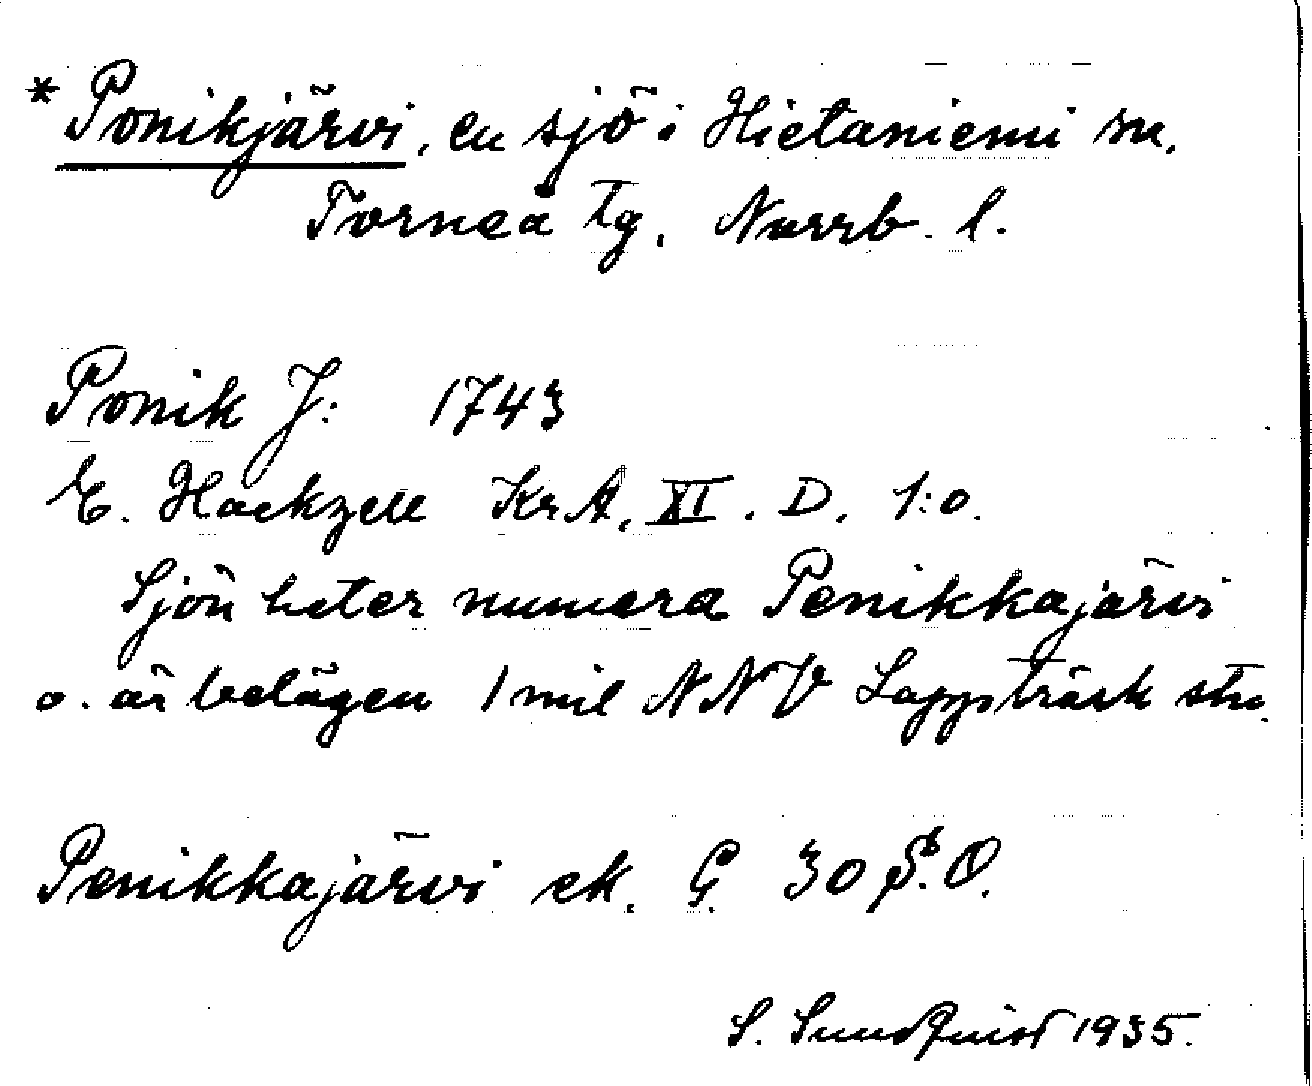 * Ponikjärvi, en sjö i Hietaniemi sn.
Torneå tg. Norrb. l.
Ponik J: 1743
E. Hackzell Kr.A. XI. D. 1:o.
Sjön heter numera Penikkajärvi
o. är belägen 1 mil NNV Lappträsk stn.
Penikkajärvi ek. G. 30 S. O.
S. Sundquist 1935.